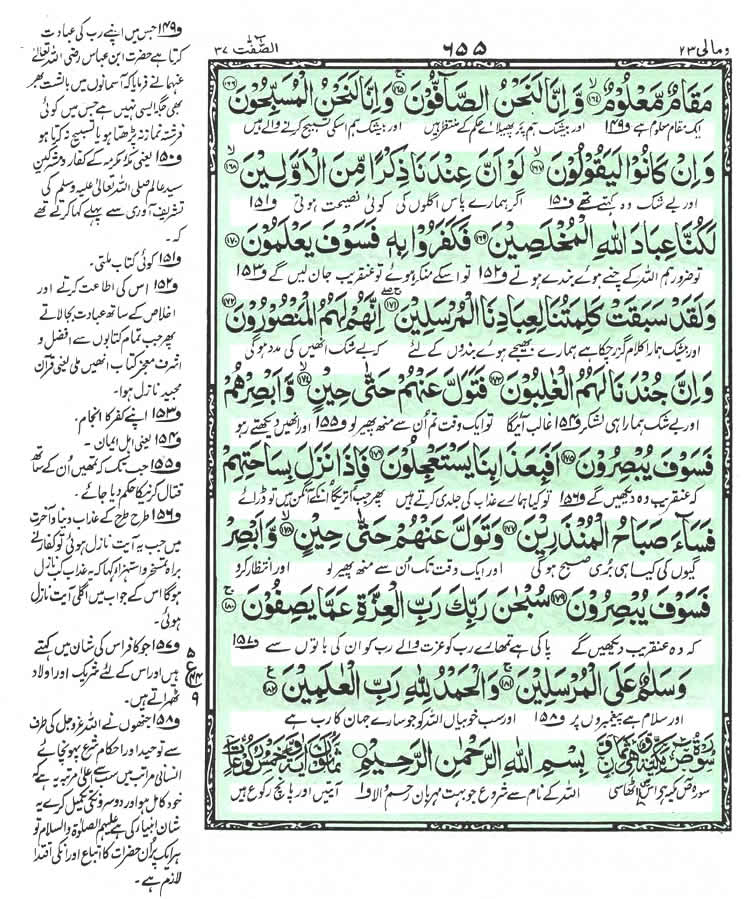 ومالی ۲۳
۶۵۵
الصّٰفّٰت ۳۷
مَقَامٌ مَّعْلُوْمٌ ﴿۱۶۴﴾ وَّاِنَّا لَنَحْنُ الصَّآفُّوْنَ ﴿۱۶۵﴾ وَاِنَّا لَنَحْنُ الْمُسَبِّحُوْنَ ﴿۱۶۶﴾
ایک مقام معلوم ہے و۱۴۹ اور بیشک ہم پر پھیلائے حکم کے منتظر ہیں اور بیشک ہم اسکی تسبیح کرنے والے ہیں
وَاِنْ كَانُوْا لَيَقُوْلُوْنَ ﴿۱۶۷﴾ لَوْ اَنَّ عِنْدَنَا ذِكْرًا مِّنَ الْاَوَّلِيْنَ ﴿۱۶۸﴾
اور بے شک وہ کہتے تھے و۱۵۰ اگر ہمارے پاس اگلوں کی کوئی نصیحت ہوتی و۱۵۱
لَكُنَّا عِبَادَ اللّٰهِ الْمُخْلَصِيْنَ ﴿۱۶۹﴾ فَكَفَرُوْا بِهٖ فَسَوْفَ يَعْلَمُوْنَ ﴿۱۷۰﴾
تو ضرور ہم اللہ کے چنے ہوئے بندے ہوتے و۱۵۲ تو اسکے منکر ہوئے تو عنقریب جان لیں گے و۱۵۳
وَلَقَدْ سَبَقَتْ كَلِمَتُنَا لِعِبَادِنَا الْمُرْسَلِيْنَ ﴿۱۷۱﴾ اِنَّهُمْ لَهُمُ الْمَنْصُوْرُوْنَ ﴿۱۷۲﴾
اور بیشک ہمارا کلام گزر چکا ہے ہمارے بھیجے ہوئے بندوں کے لئے کہ بے شک انھیں کی مدد ہوگی
وَاِنَّ جُنْدَنَا لَهُمُ الْغٰلِبُوْنَ ﴿۱۷۳﴾ فَتَوَلَّ عَنْهُمْ حَتّٰى حِيْنٍ ﴿۱۷۴﴾ وَّاَبْصِرْهُمْ
اور بے شک ہمارا ہی لشکر و۱۵۴ غالب آئیگا تو ایک وقت تم اُن سے منھ پھیر لو و۱۵۵ اور انھیں دیکھتے رہو
فَسَوْفَ يُبْصِرُوْنَ ﴿۱۷۵﴾ اَفَبِعَذَابِنَا يَسْتَعْجِلُوْنَ ﴿۱۷۶﴾ فَاِذَا نَزَلَ بِسَاحَتِهِمْ
کہ عنقریب وہ دیکھیں گے و۱۵۶ تو کیا ہمارے عذاب کی جلدی کرتے ہیں پھر جب اتریگا انکے آنگن میں تو ڈرائے
فَسَآءَ صَبَاحُ الْمُنْذَرِيْنَ ﴿۱۷۷﴾ وَتَوَلَّ عَنْهُمْ حَتّٰى حِيْنٍ ﴿۱۷۸﴾ وَّاَبْصِرْ
گیوں کی کیا ہی بُری صبح ہوگی اور ایک وقت تک اُن سے منھ پھیر لو اور انتظار کرو
فَسَوْفَ يُبْصِرُوْنَ ﴿۱۷۹﴾ سُبْحٰنَ رَبِّكَ رَبِّ الْعِزَّةِ عَمَّا يَصِفُوْنَ ﴿۱۸۰﴾
کہ وہ عنقریب دیکھیں گے پاکی ہے تمھارے رب کو عزت والے رب کو ان کی باتوں سے و۱۵۷
وَسَلٰمٌ عَلَى الْمُرْسَلِيْنَ ﴿۱۸۱﴾ وَالْحَمْدُ لِلّٰهِ رَبِّ الْعٰلَمِيْنَ ﴿۱۸۲﴾
اور سلام ہے پیغمبروں پر و۱۵۸ اور سب خوبیاں اللہ کو جو سارے جہان کا رب ہے
بِسْمِ اللّٰهِ الرَّحْمٰنِ الرَّحِيْمِ
سورہ ص مکیہ ہے اسمیں اٹھاسی اللہ کے نام سے شروع جو بہت مہربان رحم والا و۱ آیتیں اور پانچ رکوع ہیں
و۱۴۹ جس میں اپنے رب کی عبادت
کرتا ہے حضرت ابن عباس رضی اللہ تعالیٰ
عنہما نے فرمایا کہ آسمانوں میں بالشت بھر
بھی جگہ ایسی نہیں ہے جس میں کوئی
فرشتہ نماز نہ پڑھتا ہو یا تسبیح نہ کرتا ہو
و۱۵۰ یعنی مکہ مکرمہ کے کفار و مشرکین
سید عالم صلی اللہ تعالیٰ علیہ وسلم کی
تشریف آوری سے پہلے کہا کرتے تھے
کہ۔
و۱۵۱ کوئی کتاب ملتی۔
و۱۵۲ اس کی اطاعت کرتے اور
اخلاص کے ساتھ عبادت بجا لاتے
پھر جب تمام کتابوں سے افضل و
اشرف معجز کتاب انھیں ملی یعنی قرآن
مجید نازل ہوا۔
و۱۵۳ اپنے کفر کا انجام۔
و۱۵۴ یعنی اہل ایمان۔
و۱۵۵ جب تک کہ تمھیں اُن کے ساتھ
قتال کرنیکا حکم دیا جائے۔
و۱۵۶ طرح طرح کے عذاب دنیا و آخرت
میں جب یہ آیت نازل ہوئی تو کفار نے
براہ تمسخر و استہزاء کہا کہ یہ عذاب کب نازل
ہوگا اس کے جواب میں اگلی آیت نازل
ہوئی۔
و۱۵۷ جو کافر اس کی شان میں کہتے
ہیں اور اس کے لئے شریک اور اولاد
ٹھہراتے ہیں۔
و۱۵۸ جنھوں نے اللہ عزوجل کی طرف
سے توحید اور احکام شرع پہونچائے
انسانی مراتب میں سب سے اعلیٰ مرتبہ یہ ہے کہ
خود کامل ہو اور دوسروں کی تکمیل کرے یہ
شان انبیاء کی ہے علیہم الصلوٰۃ والسلام تو
ہر ایک پر اُن حضرات کا اتباع اور انکی اقتدا
لازم ہے۔